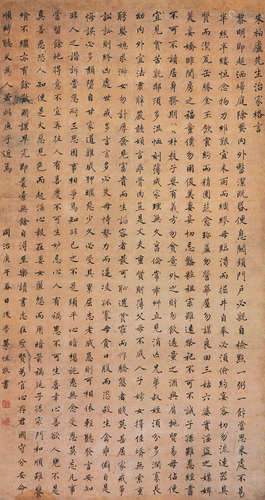 朱柏廬先生治家格言
黎明即起灑掃庭除要內外整潔既昏便息關鎖門戶必親自檢點一粥一飯當思來處不易
半絲半縷恒念物力維艱宜未雨而綢繆毋臨渴而掘井自奉必須儉約宴客切勿流連器具
質而潔瓦缶勝金玉飲食約而精園蔬愈珍饈勿營華屋勿謀良田三姑六婆實淫盜之媒婢
美妾嬌非閨房之福童僕勿用俊美妻妾切忌豔妝祖宗雖遠祭祀不可不誠子孫雖愚經書
不可不讀居身務期質樸教子要有義方勿貪意外之財勿飲過量之酒與肩挑貿易毋佔便
宜見貧苦親鄰須多溫恤刻薄成家理無久享倫常乖舛立見消亡兄弟叔姪須分多潤寡長
幼內外宜法肅辭嚴聽婦言乖骨肉豈是丈夫重貲財薄父母不成人子嫁女擇佳婿毋索重
聘娶媳求淑女勿計厚奩見富貴而生諂容者最可恥遇貧窮而作驕態者賤莫甚居家戒爭
訟訟則終凶處世戒多言言多必失毋恃勢力而凌逼孤寡勿貪口腹而恣殺生禽乖僻自是
悔誤必多頹惰自甘家道難成狎暱惡少久必受其累屈志老成急則可相依輕聽發言安知
非人之譖訴當忍耐三思因事相爭焉知非己之不是須平心暗想施惠無念受恩莫忘凡事
當留餘地得意不宜再往人有喜慶不可生妒忌心人有禍患不可生喜幸心善欲人見不是
真善惡恐人知便是大惡見色而起淫心報在妻女匿怨而用暗箭禍延子孫家門和順雖饔
飧不繼亦有餘歡國課早完即囊橐無餘自得至樂讀書志在聖賢為官心存君國守分安命
順時聽天為人若此庶乎近焉
同治庚午春日
書